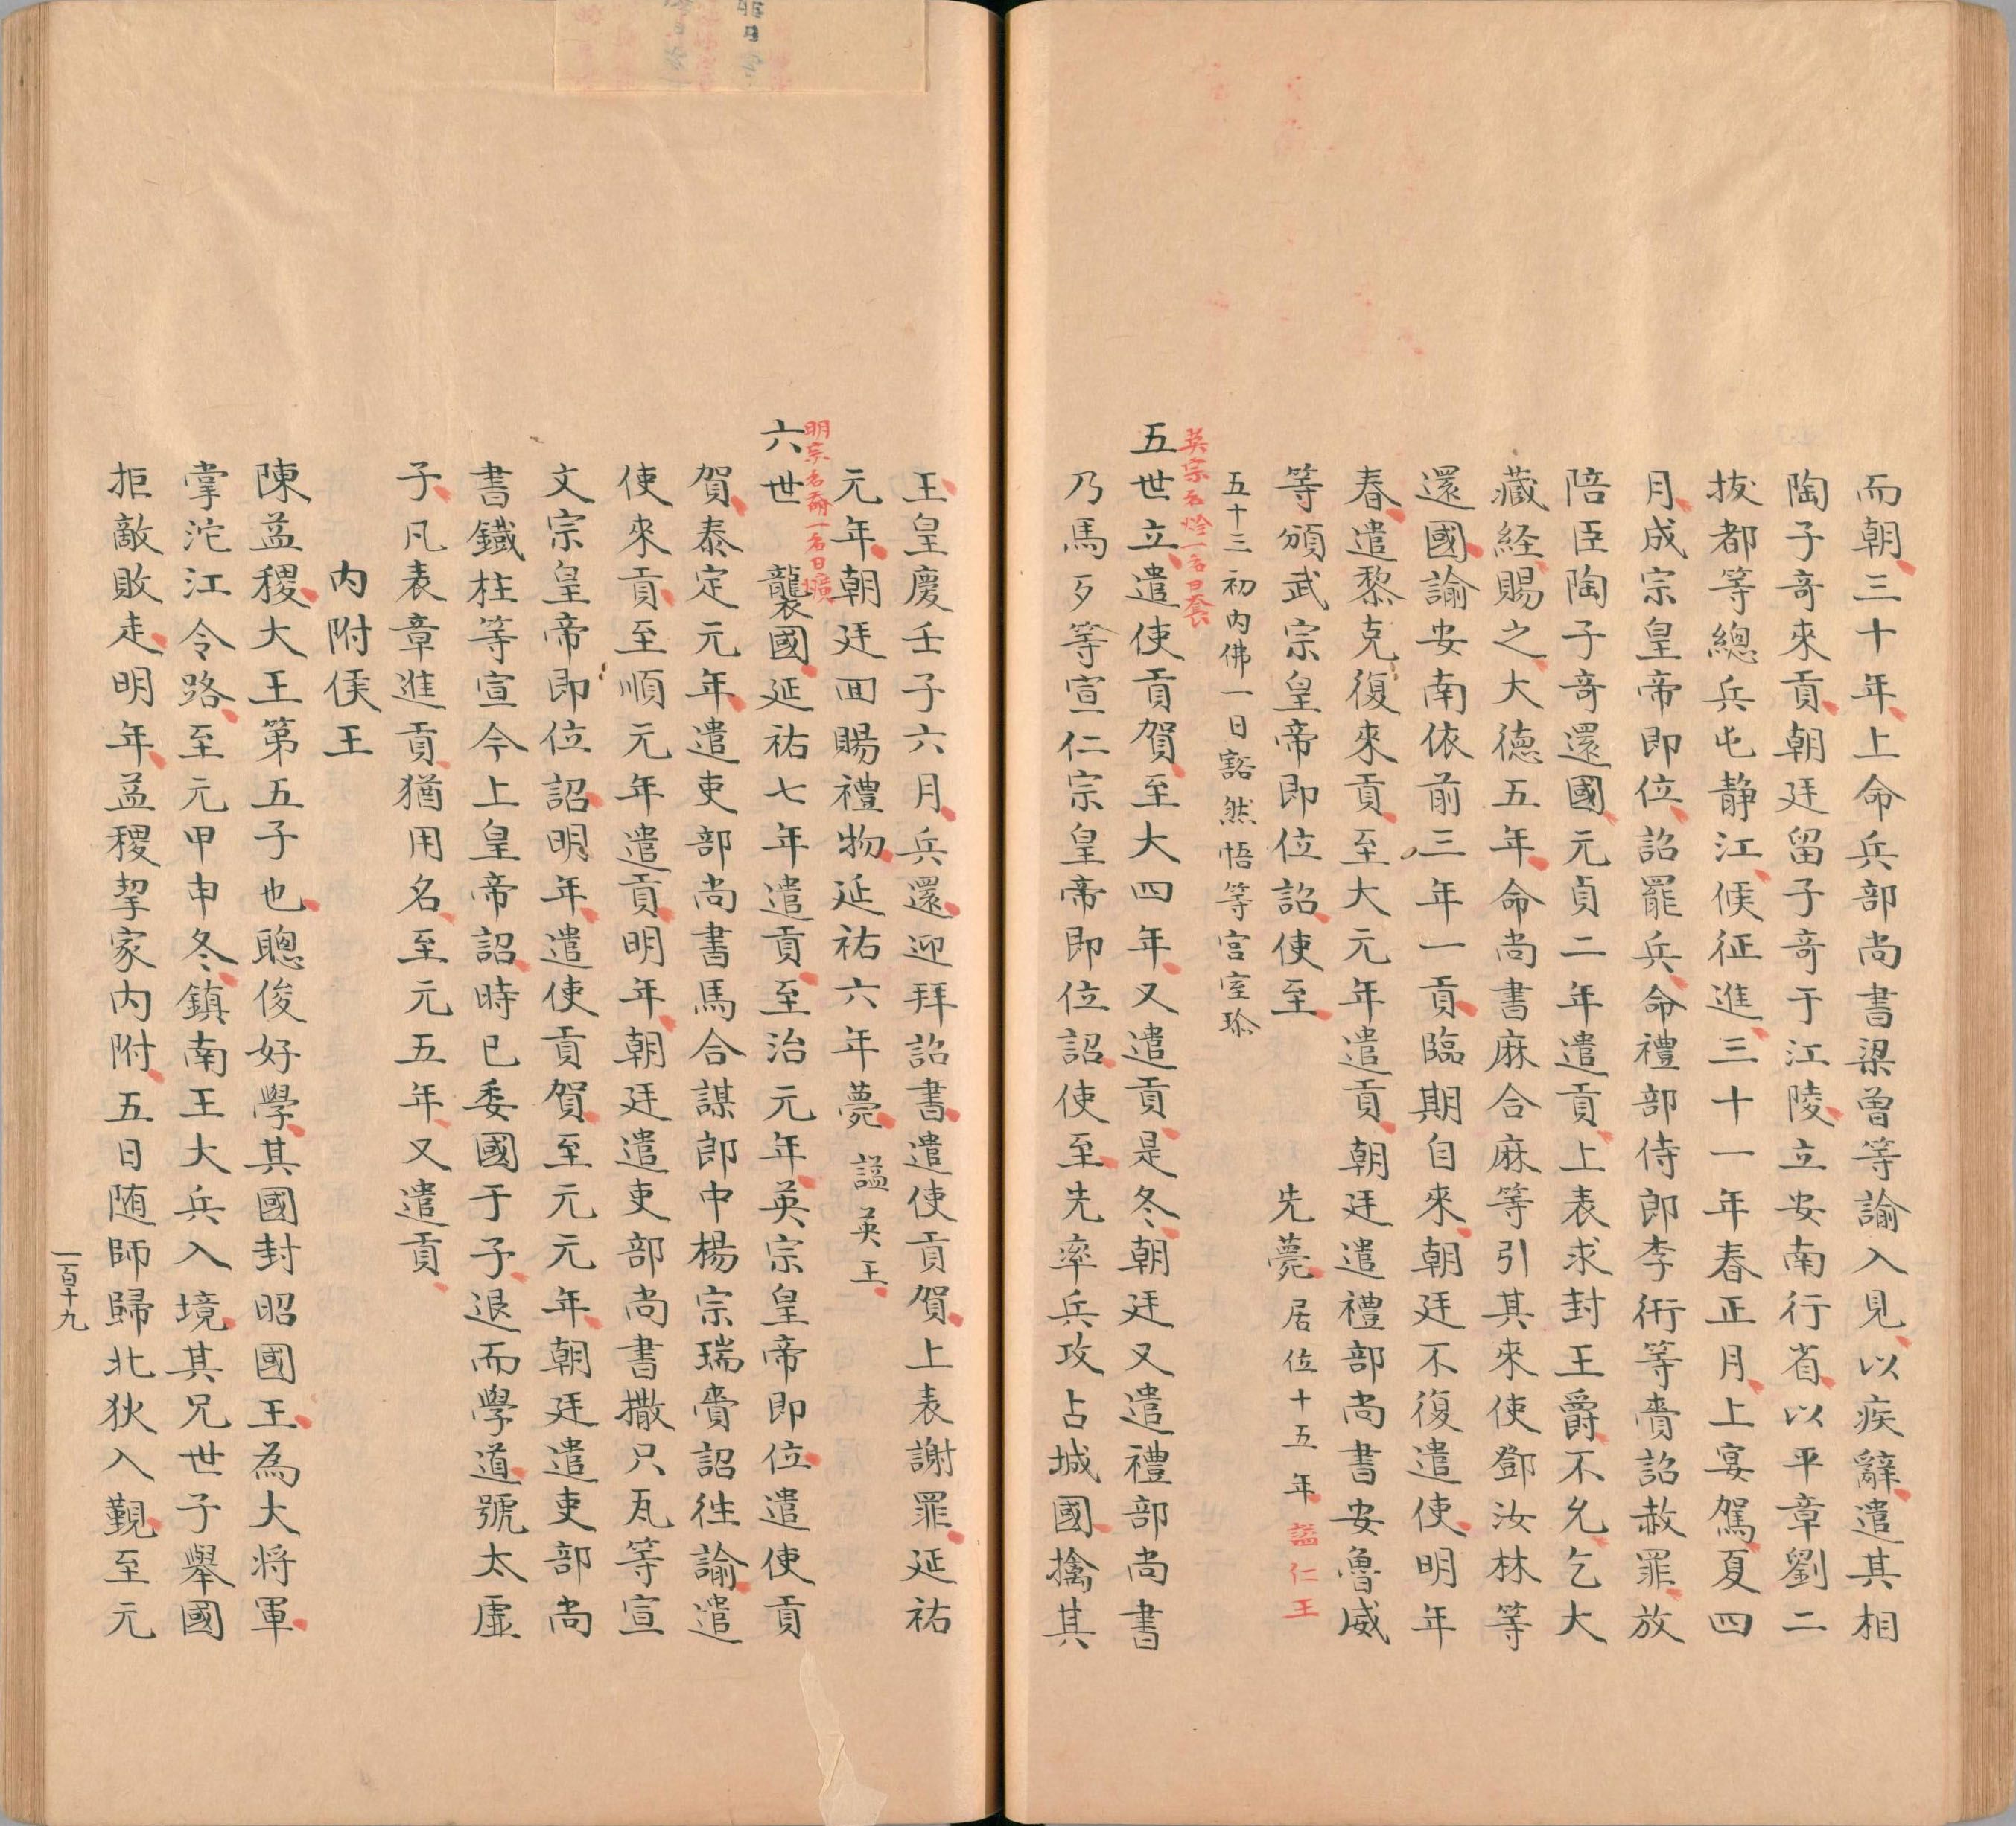 而朝三十年上命兵部尚書梁曾等諭入見以疾辭遣其相
陶子奇來貢朝廷留子奇于江陵立安南行省以平章劉二
拔都等總兵屯静江候征進三十一年春正月上宴駕夏四
月成宗皇帝即位詔罷兵命禮部侍郎李衎等賫詔赦罪放
陪臣陶子奇還國元貞二年遣貢上表求封王爵不允乞大
藏経賜之大德五年命尚書麻合麻等引其來使鄧汝林等
還國諭安南依前三年一貢臨期自來朝廷不復遣使明年
春遣黎克復來貢至大元年遣貢朝廷遣禮部尚書安魯威
等頒武宗皇帝即位詔使至 先薨居位十五年謚仁王
五十三初内佛一日豁然悟等宫室珎
英宗名烇一名日㷃
五世立遣使貢賀至大四年又遣貢是冬朝廷又遣禮部尚書
乃馬歹等宣仁宗皇帝即位詔使至先率兵攻占城國擒其
王皇慶壬子六月兵還迎拜詔書遣使貢賀上表謝罪延祐
元年朝廷囬賜禮物延祐六年薨 謚英王
明宗名奣一名日爌
六世 襲國延祐七年遣貢至治元年英宗皇帝即位遣使貢
賀泰定元年遣吏部尚書馬合謀郎中楊宗瑞賫詔徃諭遣
使來貢至順元年遣貢明年朝廷遣吏部尚書撒只瓦等宣
文宗皇帝即位詔明年遣使貢賀至元元年朝廷遣吏部尚
書鐵柱等宣今上皇帝詔時已委國于子退而學道號太虛
子凡表章進貢猶用名至元五年又遣貢
内附侯王
陳益稷大王第五子也聰俊好學其國封昭國王為大将軍
掌沱江令路至元甲申冬鎮南王大兵入境其兄世子舉國
拒敵敗走明年益稷挈家内附五日随師歸北狄入覲至元
一百十九